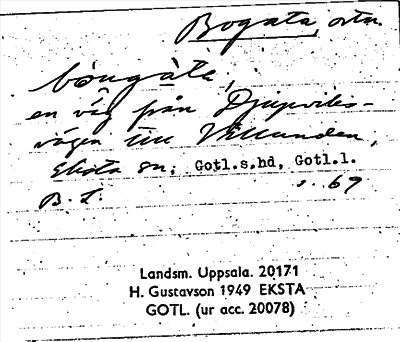 Bogata, ortn.
bougàtạ,
en väg från Djupviks-
vägen till
Eksta sn. Gotl.s.hd, Gotl.l.
s. 69
B. I.
Landsm. Uppsala. 20171
H. Gustavson 1949 EKSTA
GOTL. (ur acc. 20078)